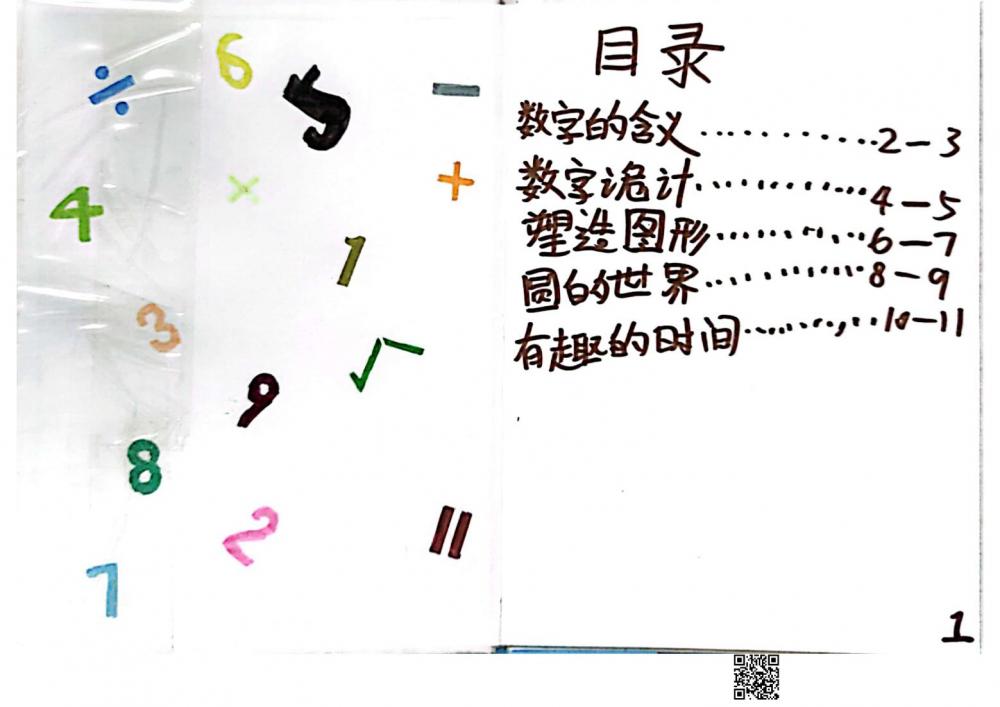 ÷
6
5
−
4
×
+
1
3
√
9
8
2
=
7
目录
数字的含义············2－3
数字诡计············4－5
塑造图形············6－7
圆的世界············8－9
有趣的时间············10－11
1